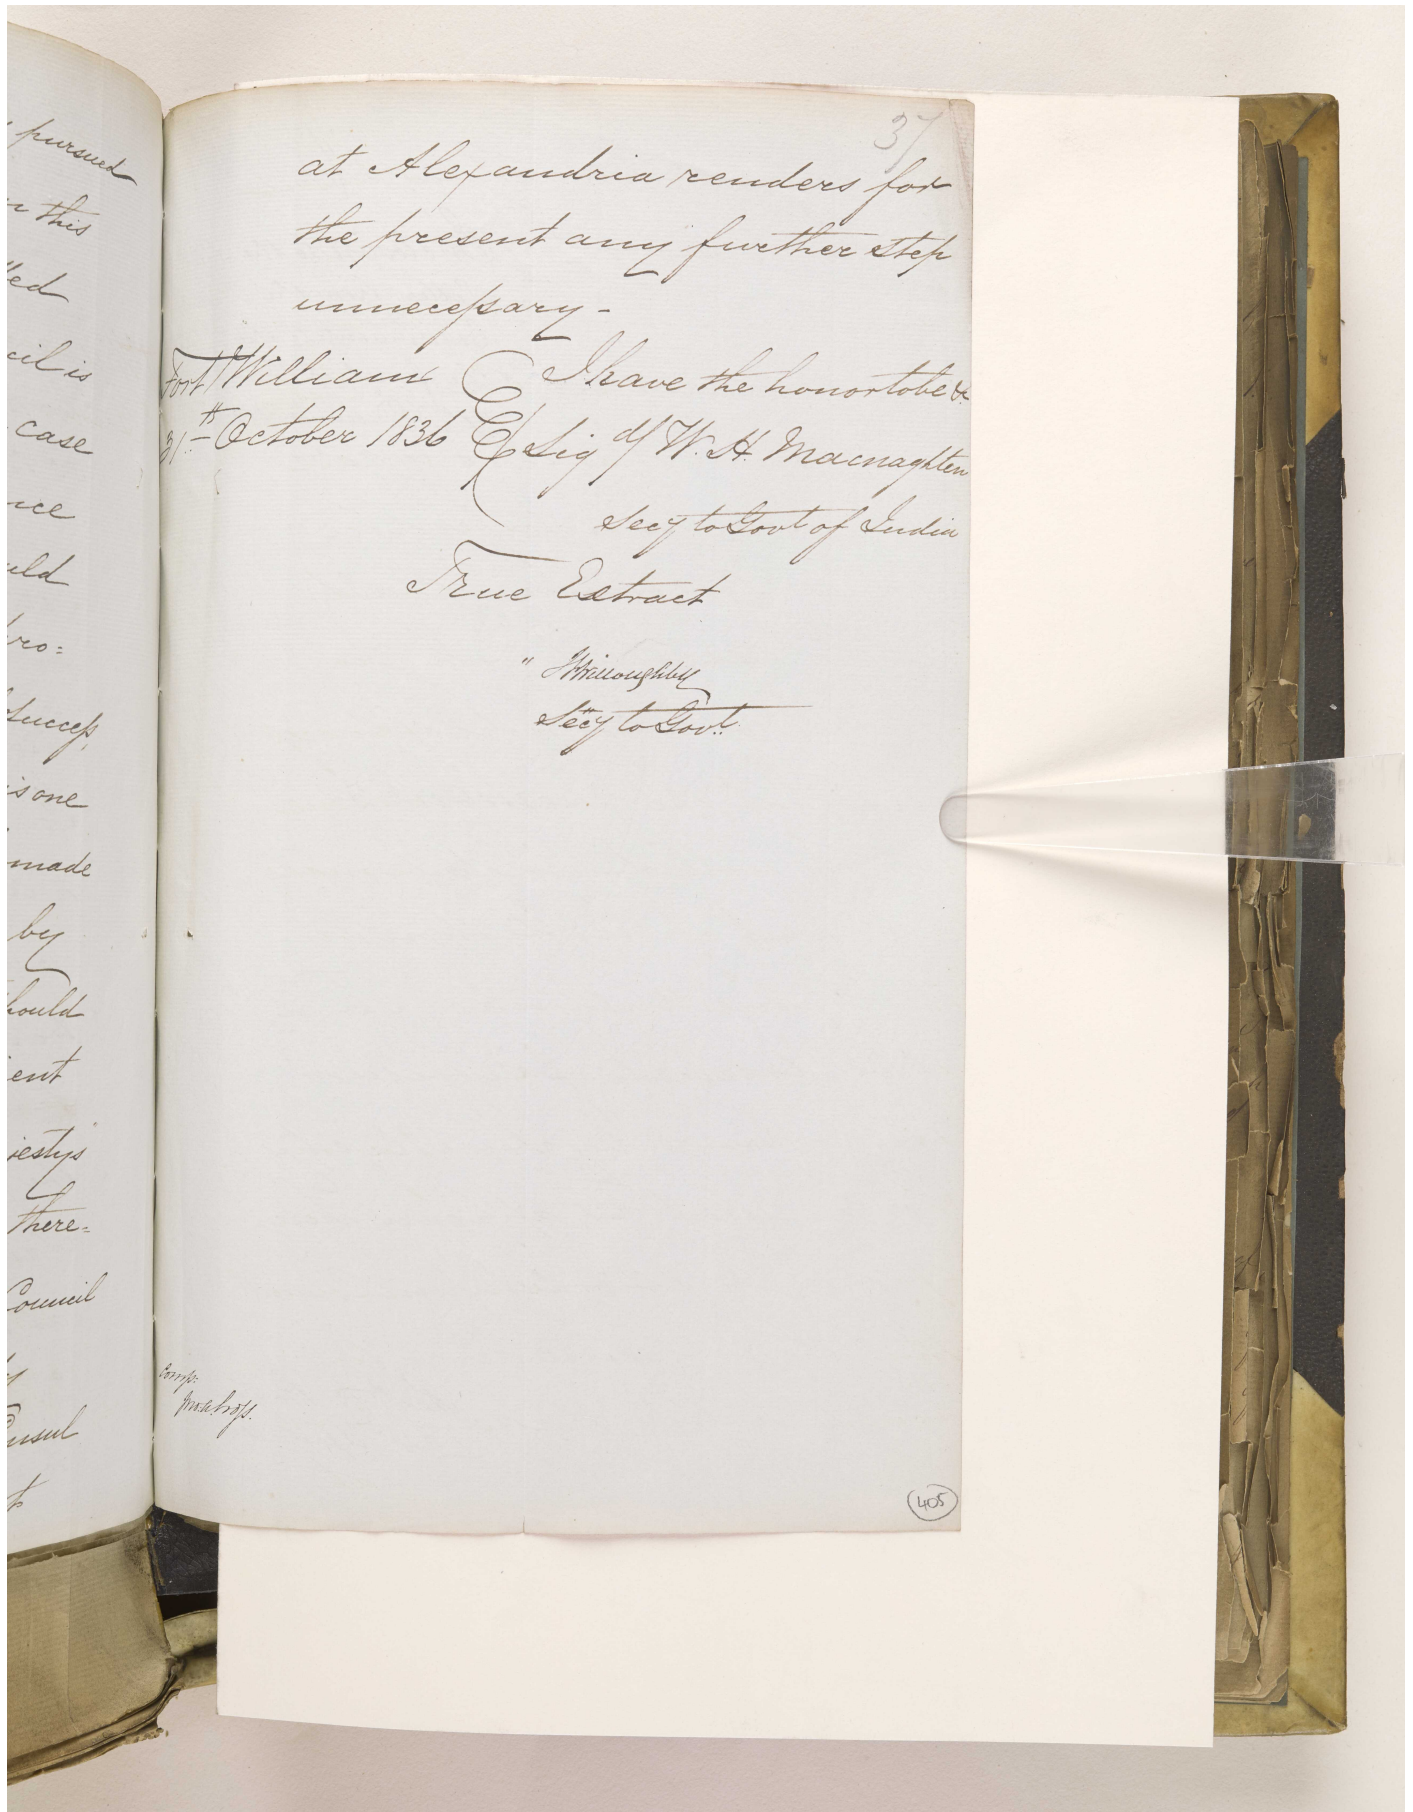 pursued
this
ed
cil is
case
nce
uld
pro:
success,
is one
made
by
should
ent
jestys
there=
Council
nsul
37
at Alexandria renders for
the present any further step
unnecessary -
Fort William I have the honor to be &c
31st October 1836 Sigd/ W. H. Macnaghten
Secy to Govt of India
True Extract
" Willoughby
Secy to Govt.
Comp:
405